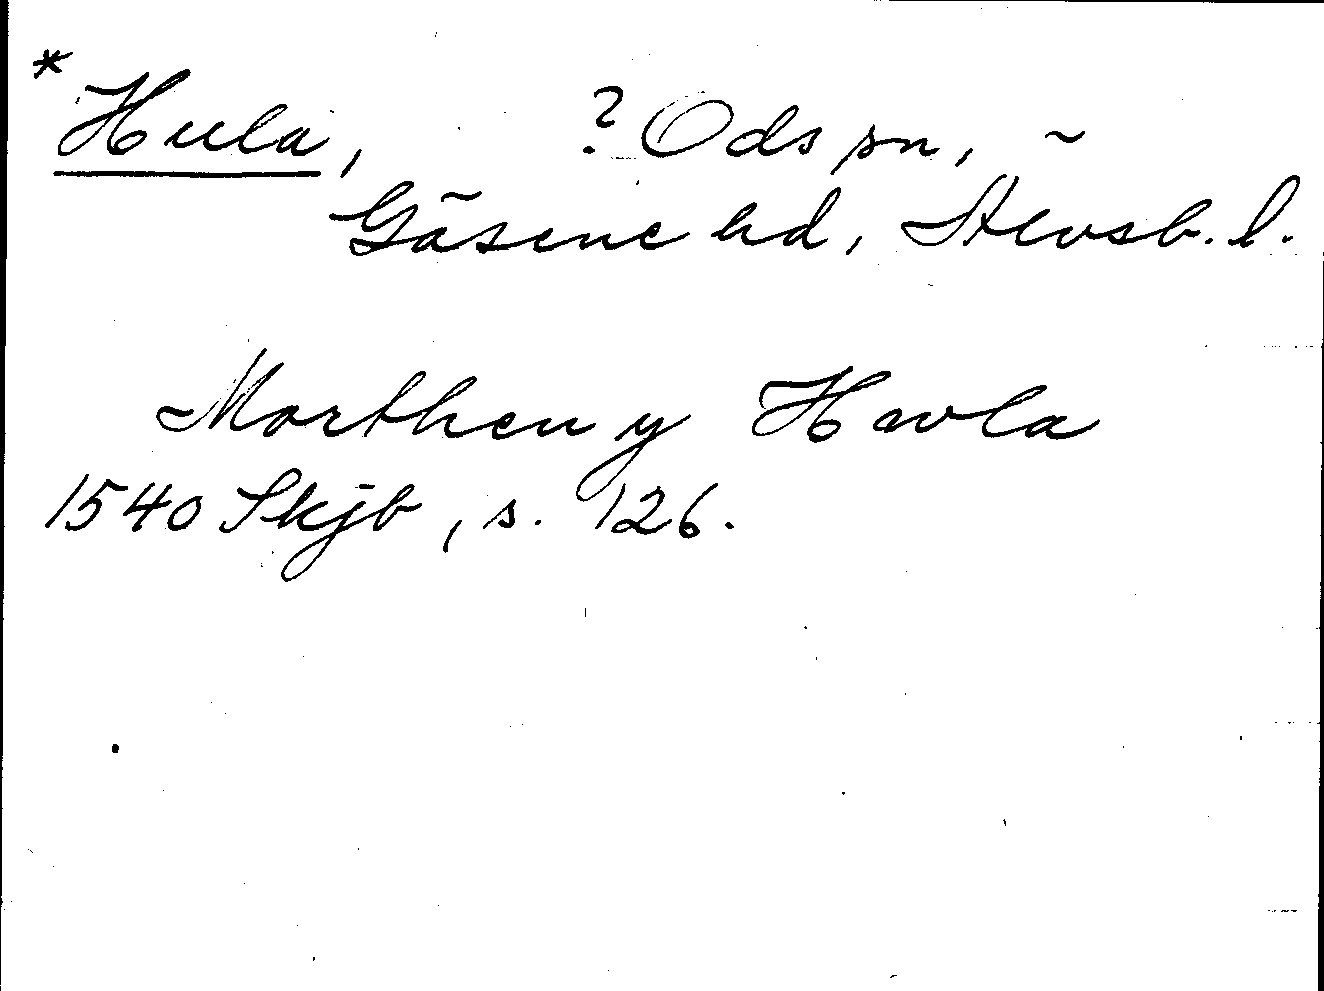 * Hula, ? Ods sn,
Gäsene hd, Älvsb. l.
Morthen y Hwla
1540 Skjb, s. 126.